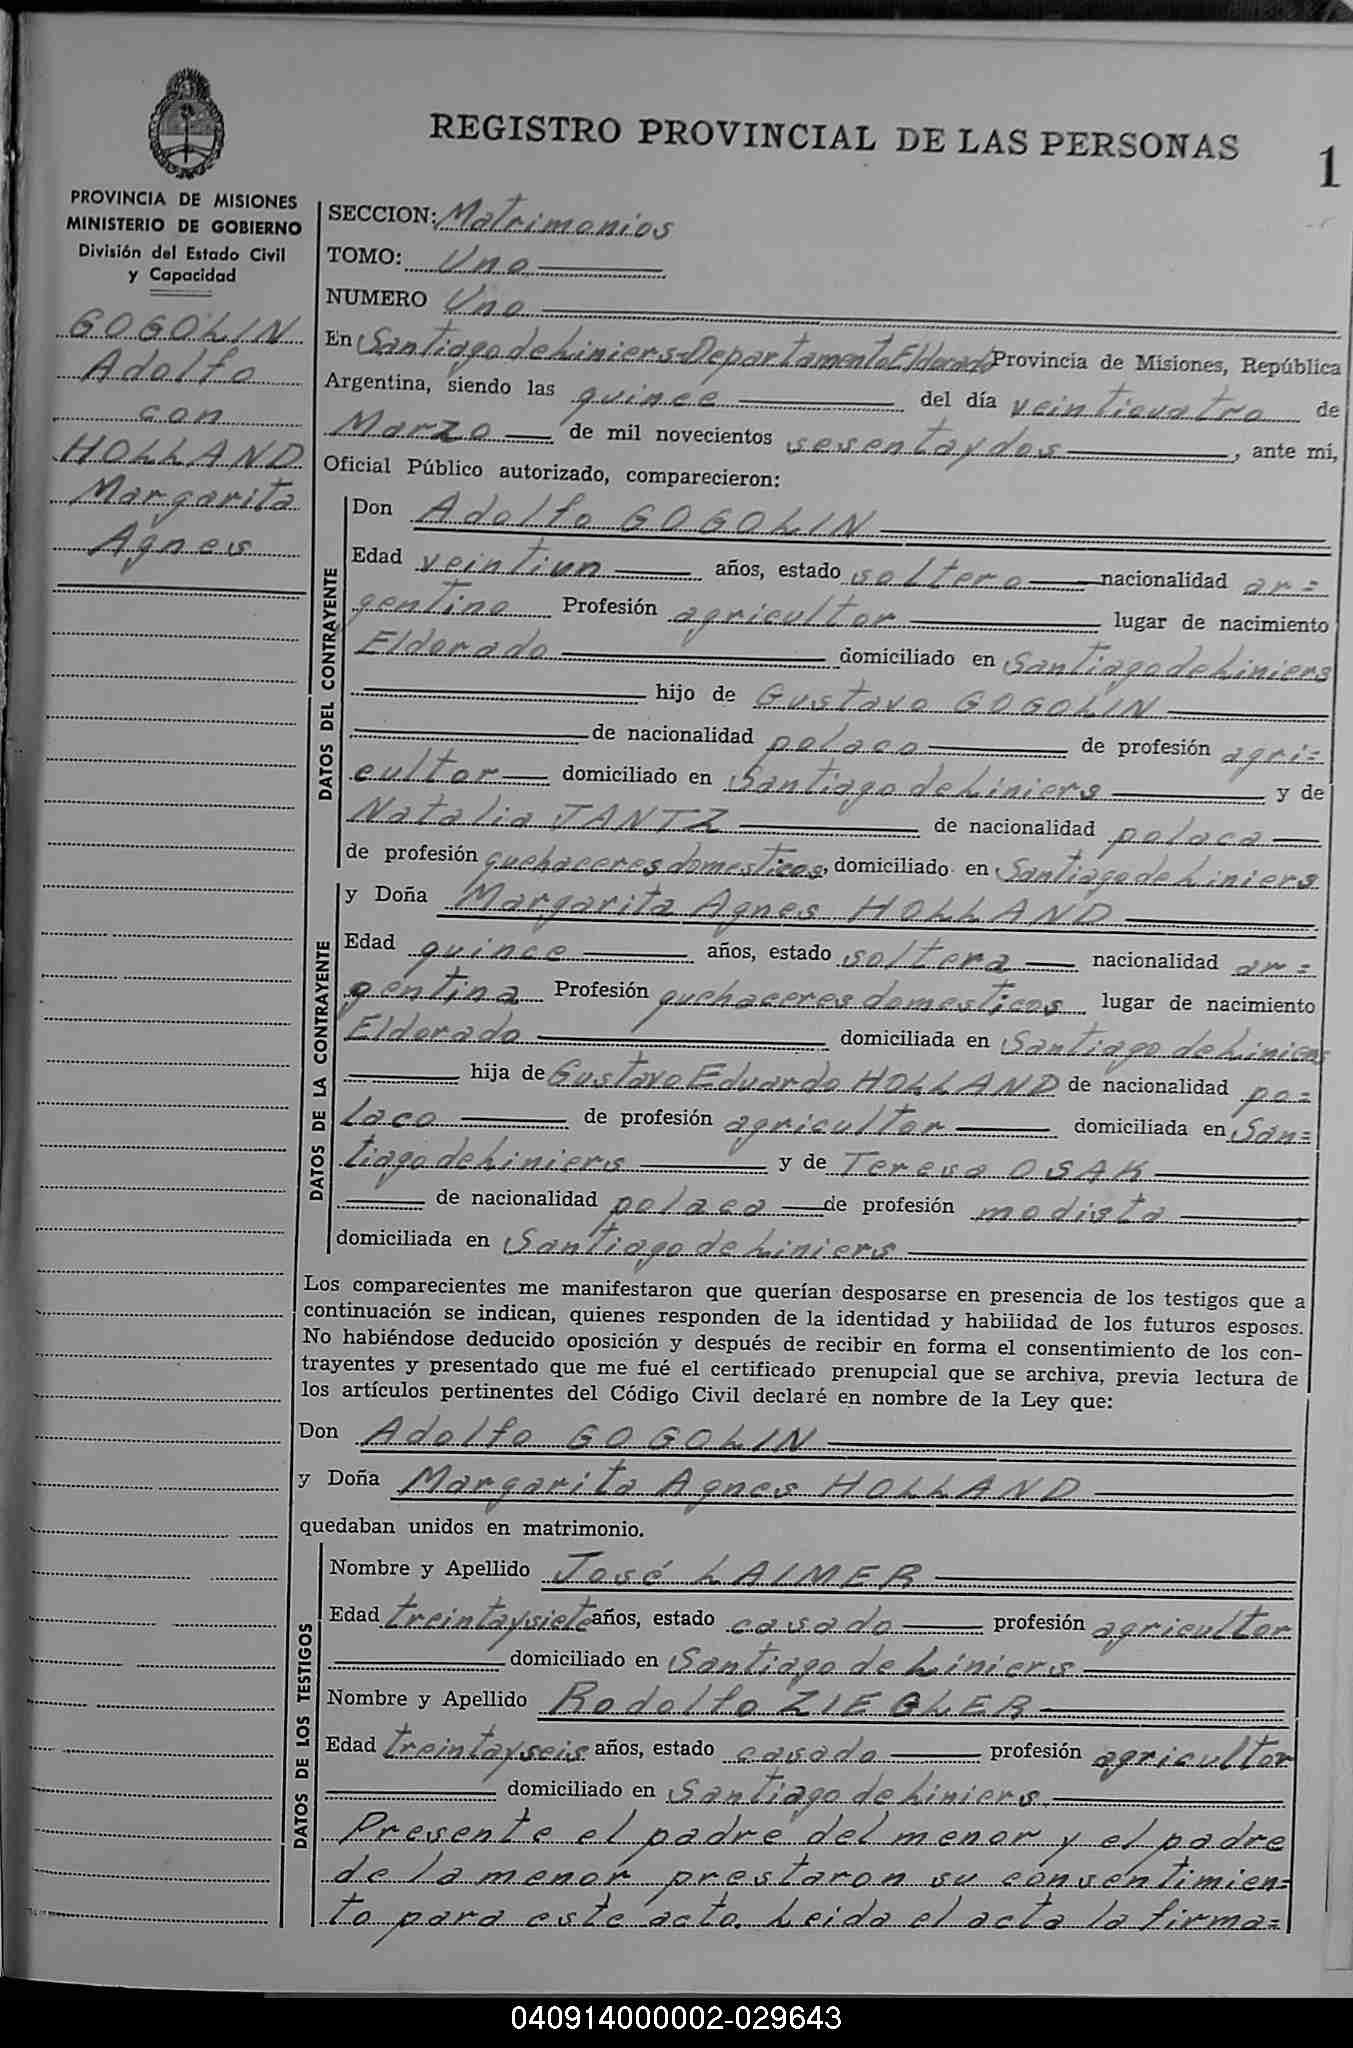 REGISTRO PROVINCIAL DE LAS PERSONAS
1
PROVINCIA DE MISIONES
MINISTERIO DE GOBIERNO
División del Estado Civil
y Capacidad
GOGOLIN
Adolfo
con
HOLLAND
Margarita
Agnes
SECCION: Matrimonios
TOMO: Uno
NUMERO Uno
En Santiago de Liniers-Departamento Eldorado Provincia de Misiones, República
Argentina, siendo las quince del día veinticuatro de
Marzo de mil novecientos sesenta y dos, ante mí,
Oficial Público autorizado, comparecieron:
DATOS DEL CONTRAYENTE
Don Adolfo GOGOLIN
Edad veintiun años, estado soltero nacionalidad ar=
gentino Profesión agricultor lugar de nacimiento
Eldorado domiciliado en Santiago de Liniers
hijo de Gustavo GOGOLIN
de nacionalidad polaco de profesión agri=
cultor domiciliado en Santiago de Liniers y de
Natalia JANTZ de nacionalidad polaca
de profesión quehaceres domesticos, domiciliado en Santiago de Liniers
DATOS DE LA CONTRAYENTE
y Doña Margarita Agnes HOLLAND
Edad quince años, estado soltera nacionalidad ar=
gentina Profesión quehaceres domesticos lugar de nacimiento
Eldorado domiciliada en Santiago de Liniers
hija de Gustavo Eduardo HOLLAND de nacionalidad po=
laco de profesión agricultor domiciliada en San=
tiago de Liniers y de Teresa OSAK
de nacionalidad polaca de profesión modista
domiciliada en Santiago de Liniers
Los comparecientes me manifestaron que querían desposarse en presencia de los testigos que a
continuación se indican, quienes responden de la identidad y habilidad de los futuros esposos.
No habiéndose deducido oposición y después de recibir en forma el consentimiento de los con-
trayentes y presentado que me fué el certificado prenupcial que se archiva, previa lectura de
los artículos pertinentes del Código Civil declaré en nombre de la Ley que:
Don Adolfo GOGOLIN
y Doña Margarita Agnes HOLLAND
quedaban unidos en matrimonio.
DATOS DE LOS TESTIGOS
Nombre y Apellido José LAIMER
Edad treinta y siete años, estado casado profesión agricultor
domiciliado en Santiago de Liniers
Nombre y Apellido Rodolfo ZIEGLER
Edad treinta y seis años, estado casado profesión agricultor
domiciliado en Santiago de Liniers
Presente el padre del menor y el padre
de la menor prestaron su consentimien=
to para este acto. Leida el acta la firma=
040914000002-029643